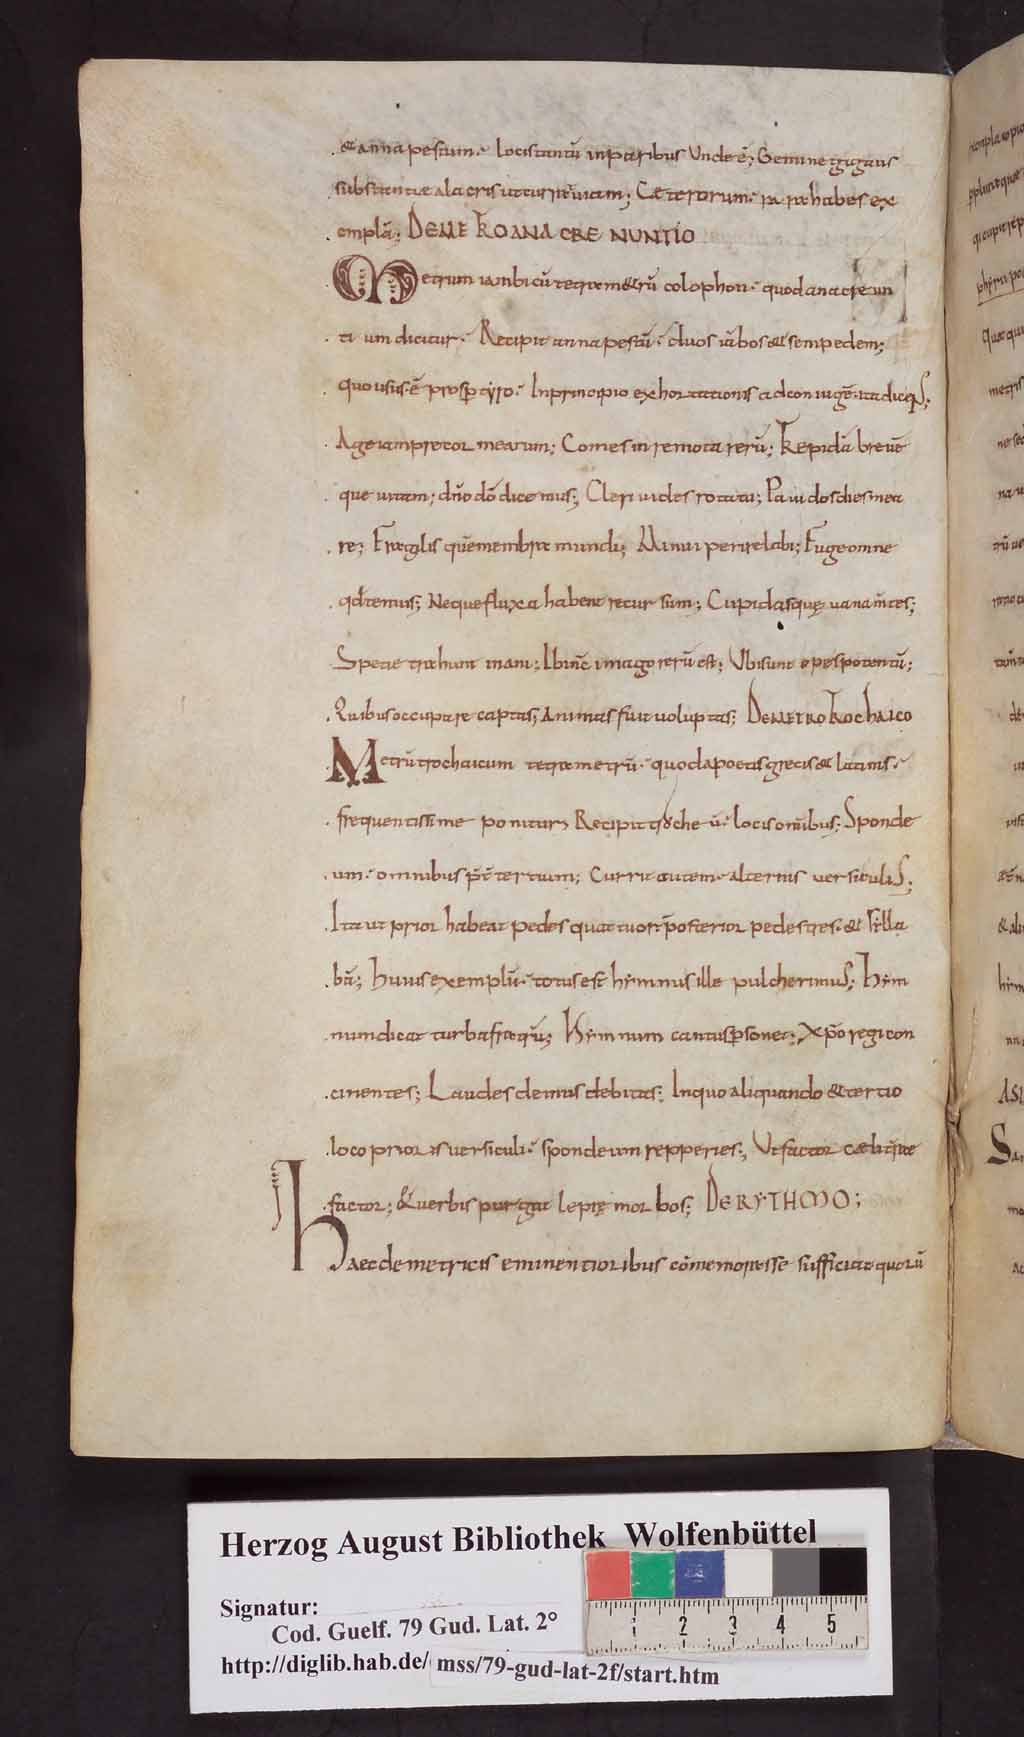 & annapestum· Locis tantū inparibus Unde ē; Geminę gigans
substantię alacris ut currat viam; Cęterorum· rara habes ex
emplā; DE METRO ANACREUNTIO
Metrum iambicū tetram&rū colophon· quod anacreun
tium dicitur· Recipit annapestū· duos iābos & semipedem;
quo usus· ē prosper tyro· In principio exhortationis ad coniugē· ita dicens;
Age iam precor mearum; Comes inremota rerū; Trepidā brevē
que vitam; dn̄o dō dicemus; Celeri vides rotatu; Pavidos dies mea
re; Fragilis quē membra mundi; Minui perire labi; Fuge omne
qd tenemus; Neque fluxa habent recursum; Cupidasque vana mētes;
Specie trahunt inani; Ubi nc̄ imago rerū est; Ubi sunt opes potentū;
Quibus occupare captas; Animas fuit voluptas; DE METRO TROCHAICO
Metrū trochaicum tetrametrū· quod a poetis grecis & latinis·
frequentissime ponitur, Recipit trocheū· locis omībus; Sponde
um· omnibus p̄t tertium; Currit autem· alternis versiculis;
Ita ut prior habeat pedes quattuor· posterior pedes tres· & silla
bā; Huius exemplū· totus est hymnus ille pulcherimus; Hym
num dicat turba fratrū; Hymnum cantus personet; Xp̄o regi con
cinentes; Laudes demus debitas; In quo aliquando & tertio
loco prioris versiculi· spondeum repperies; Ut factor cęli terrę
factor; & verbis purgat leprę morbos; DE RYTHMO;
Haec de metricis eminentioribus cōmemorasse sufficiat quorū
Herzog August Bibliothek Wolfenbüttel
Signatur:
Cod. Guelf. 79 Gud. Lat. 2°
http://diglib.hab.de/ mss/79-gud-lat-2f/start.htm
1 2 3 4 5